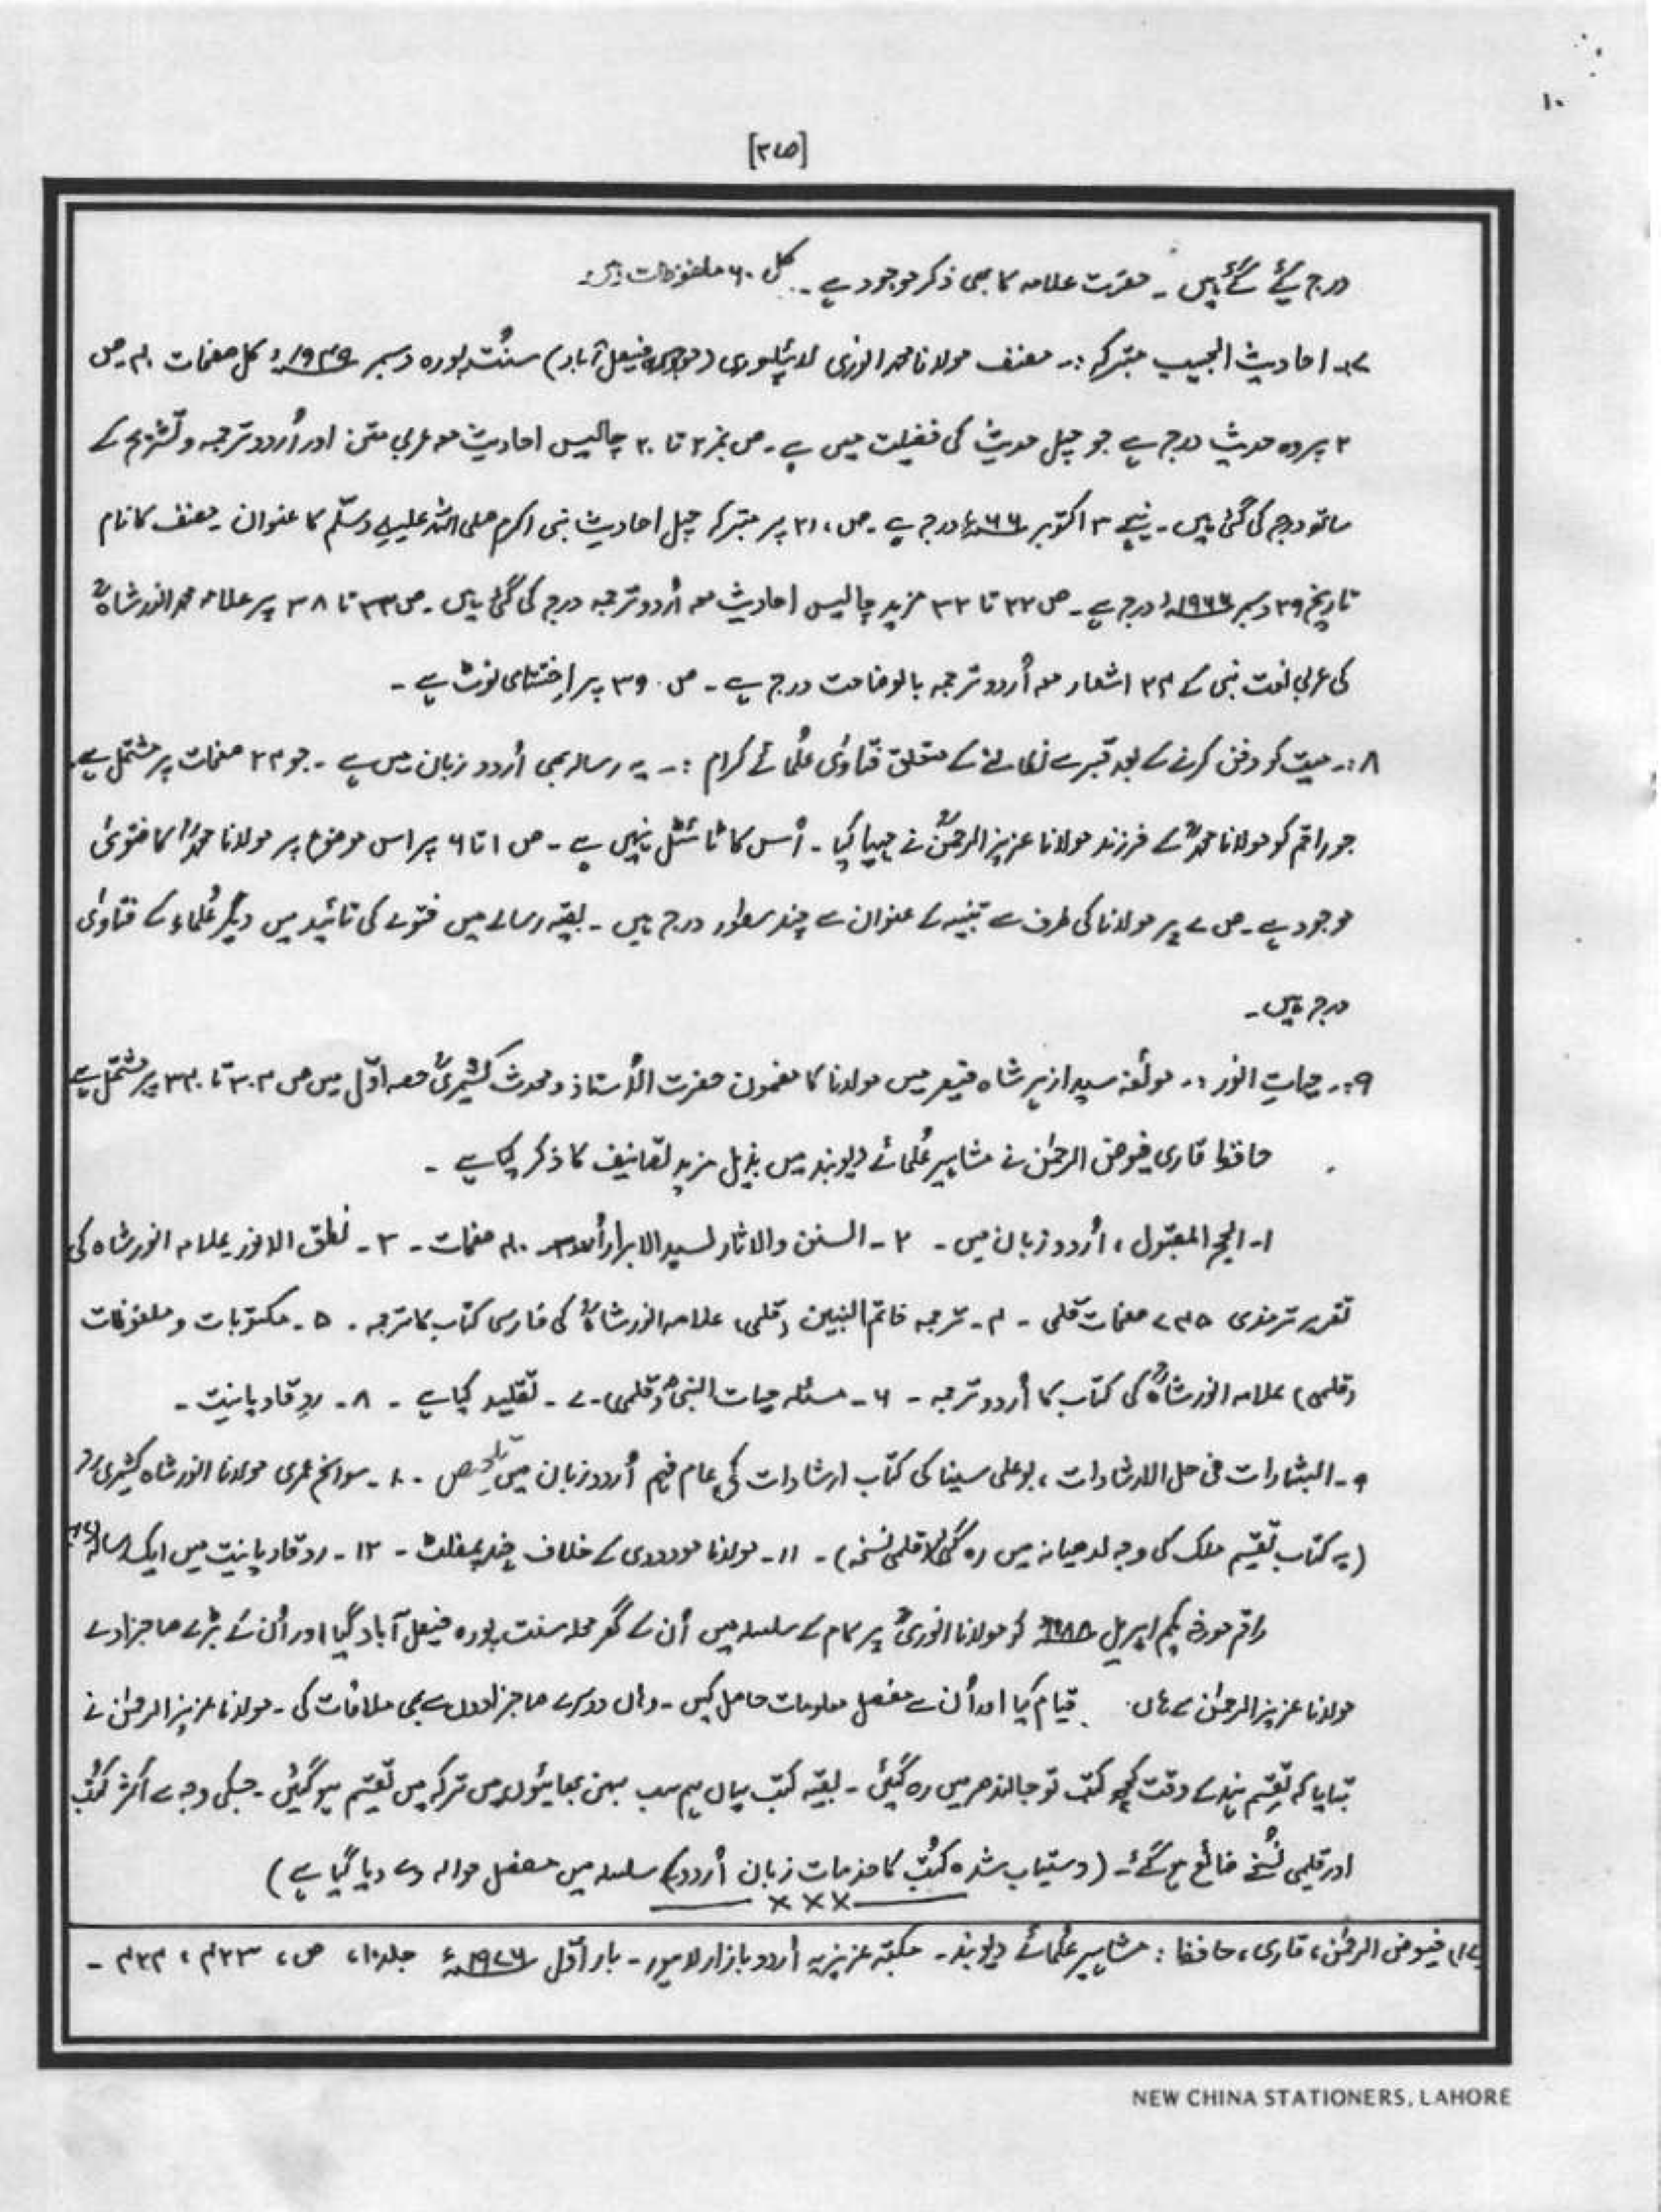 ۱۰
[۲۷۵]
درج کیے گئے ہیں ۔ حضرت علامہ کا بھی ذکر موجود ہے ۔ کل ۶۰ ملفوظات ہیں۔
۷:۔ احادیث الحبیب متبرکہ :۔ مصنف مولانا محمد انوری لائیلپوری (موجودہ فیصل آباد) سنت پورہ دسمبر ۱۹۴۶ء کل صفحات ۴۰ ۔ ص
۲ پر وہ حدیث درج ہے جو چہل حدیث کی فضیلت میں ہے ۔ ص نمبر ۲ تا ۲۰ چالیس احادیث معہ عربی متن اور اُردو ترجمہ و تشریح کے
ساتھ درج کی گئی ہیں ۔ نیچے ۳ اکتوبر ۶۶ء درج ہے ۔ ص، ۲۱ پر متبرکہ چہل احادیث نبی اکرم صلی اللہ علیہ وسلّم کا عنوان ۔ مصنف کا نام
تاریخ ۲۹ دسمبر ۱۹۶۶ء درج ہے ۔ ص ۲۲ تا ۳۲ مزید چالیس احادیث معہ اُردو ترجمہ درج کی گئی ہیں ۔ ص ۳۳ تا ۳۸ پر علامہ محمد انور شاہؒ
کی عربی نعت نبی کے ۳۴ اشعار معہ اُردو ترجمہ بالوضاحت درج ہے ۔ ص ۳۹ پر اختتامی نوٹ ہے ۔
۸:۔ میت کو دفن کرنے کے بعد قبر سے نکالنے کے متعلق فتاویٰ عُلمائے کرام :۔ یہ رسالہ بھی اُردو زبان میں ہے ۔ جو ۲۴ صفحات پر مشتمل ہے۔
جو راقم کو مولانا محمدؒ کے فرزند مولانا عزیز الرحمٰنؒ نے مہیا کیا ۔ اُس کا ٹائٹل نہیں ہے ۔ ص ۱ تا ۶ پر اس موضوع پر مولانا محمدؒ کا فتویٰ
موجود ہے ۔ ص ۷ پر مولانا کی طرف سے تنبیہ کے عنوان سے چند سطور درج ہیں ۔ بقیہ رسالے میں فتوے کی تائید میں دیگر عُلماء کے فتاویٰ
درج ہیں ۔
۹:۔ حیاتِ انور :۔ مولفہ سید ازہر شاہ قیصر میں مولانا کا مضمون حضرت الاُستاذ و محدث کشمیریؒ حصہ اوّل میں ص ۳۰۲ تا ۳۳۰ پر مشتمل ہے
حافظ قاری فیوض الرحمٰن نے مشاہیر عُلمائے دیوبند میں بذیل مزید تصانیف کا ذکر کیا ہے ۔
۱۔ الحج المقبول، اُردو زبان میں ۔ ۲۔ السنن والاثار لسید الابرار اُردو ۴۰ صفحات ۔ ۳۔ نطق الانور علامہ انور شاہ کی
تقریر ترمذی ۷۴۵ صفحات قلمی ۔ ۴۔ ترجمہ خاتم النبین (قلمی) علامہ انور شاہؒ کی فارسی کتاب کا ترجمہ ۔ ۵۔ مکتوبات و ملفوظات
(قلمی) علامہ انور شاہؒ کی کتاب کا اُردو ترجمہ ۔ ۶۔ مسئلہ حیات النبیؐ (قلمی) ۔ ۷۔ تقلید کیا ہے ۔ ۸۔ ردِ قادیانیت ۔
۹۔ البشارات فی حل الارشادات، بوعلی سینا کی کتاب ارشادات کی عام فہم اُردو زبان میں تلخیص ۔ ۱۰۔ سوانح عمری مولانا انور شاہ کشمیریؒ
(یہ کتاب تقسیم ملک کی وجہ لدھیانہ میں رہ گئی قلمی نسخہ) ۔ ۱۱۔ مولانا مودودی کے خلاف چند پمفلٹ ۔ ۱۲۔ رد قادیانیت میں ایک رسالہ
راقم مورخہ یکم اپریل ۱۹۸۸ء کو مولانا انوریؒ پر کام کے سلسلہ میں اُن کے گھر محلہ سنت پورہ فیصل آباد گیا اور اُن کے بڑے صاحبزادے
مولانا عزیز الرحمٰن کے ہاں قیام کیا اور اُن سے مفصل معلومات حاصل کیں ۔ وہاں دوسرے صاحبزادوں سے بھی ملاقات کی ۔ مولانا عزیز الرحمٰن نے
بتایا کہ تقسیم ہند کے وقت کچھ کتب تو جالندھر میں رہ گئیں ۔ بقیہ کتب یہاں ہم سب بہن بھائیوں میں ترکہ میں تقسیم ہو گئیں ۔ جسکی وجہ سے اکثر کُتب
اور قلمی نُسخے ضائع ہو گئے ۔ (دستیاب شدہ کُتب کا خدمات زبان اُردو کے سلسلہ میں مفصل حوالہ دے دیا گیا ہے)
×××
فیوض الرحمٰن، قاری، حافظ : مشاہیر عُلمائے دیوبند ۔ مکتبہ عزیزیہ اُردو بازار لاہور ۔ بار اوّل ۱۹۷۶ء جلد ۱، ص، ۴۳۳، ۴۳۴ ۔
NEW CHINA STATIONERS, LAHORE